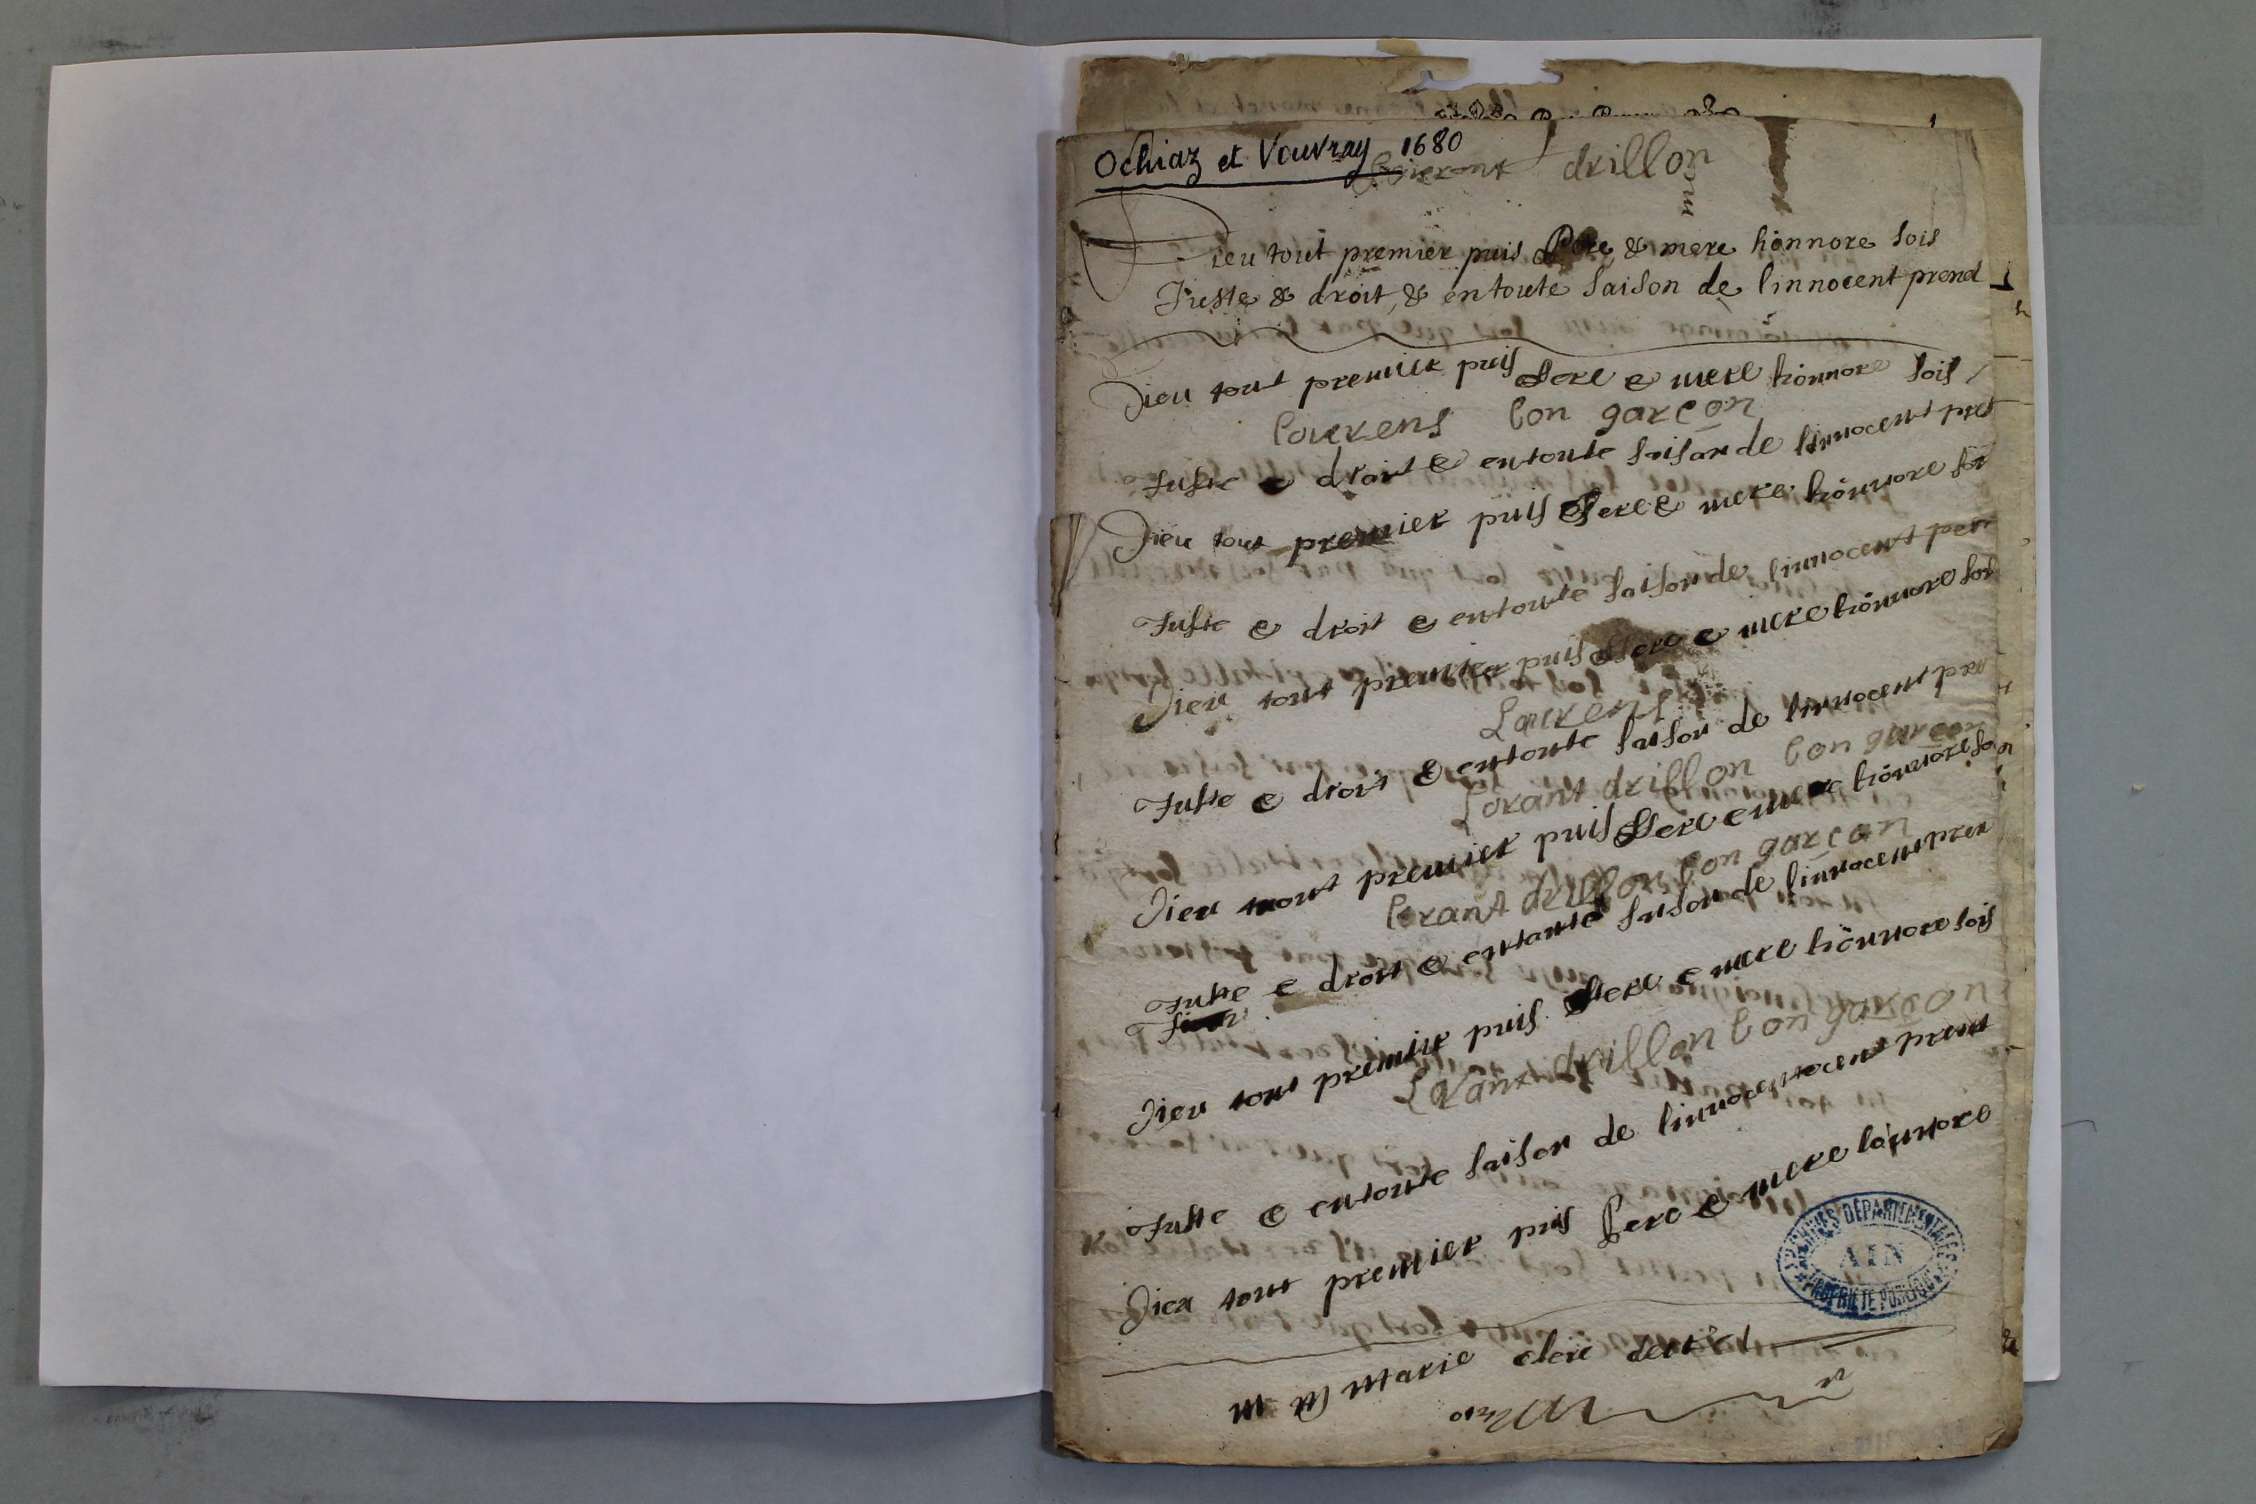 Ochiaz et Vouvray 1680
drillon
Dieu tout premier puis Pere & mere honnore sois
Juste & droit, & en toute saison de l'innocent prend
Dieu tout premier puis Pere e mere honnore sois
laurens bon garçon
Juste e droit e en toute saison de linnocent pret
Dieu tout premier puis Pere e mere honnore soi
Juste e droit e en toute saison de linnocent per
Dieu tout premier puis Pere e mere honnore soi
Laurens
Juste e droit e en toute saison de linnocent pre
Lorant drillon bon garcon
Dieu tout premier puis Pere e mere honnore so
lorant drillon bon garcon
Juste e droit e en toute saison de linnocent pren
Dieu tout premier puis Pere e mere honnore sois
Lorant drillon bon garcon
Juste e en toute saison de linnocent prent
Dieu tout premier puis Pere e mere honnore
ARCHIVES DÉPARTEMENTALES
AIN
PROPRIÉTÉ PUBLIQUE
M M Marie